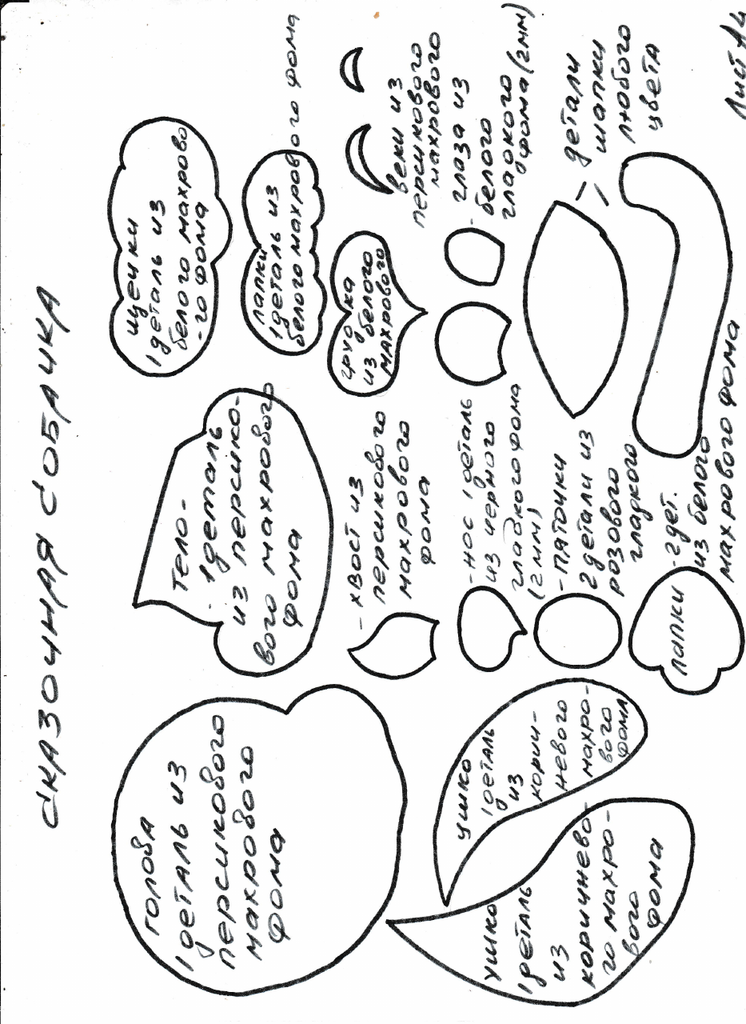 СКАЗОЧНАЯ СОБАЧКА
ГОЛОВА
1 деталь из
персикового
махрового
фома
Тело-
1 деталь
из персико-
вого махрового
фома
щечки
1 деталь из
белого махрово
-го фома
лапки
1 деталь из
белого махрового фома
грудка
из белого
махрового
веки из
персикового
махрового
глаза из
белого
гладкого
фома (2мм)
- хвост из
персикового
махрового
фома
- нос 1 деталь
из черного
гладкого фома
(2мм)
- пяточки
2 детали из
розового
гладкого
детали
шапки
любого
цвета
ушко
1 деталь
из
корич-
невого
махро-
вого
фома
ушко
1 деталь
из
коричнево-
го махро-
вого
фома
лапки
- 2 дет.
из белого
махрового фома
Лист А4